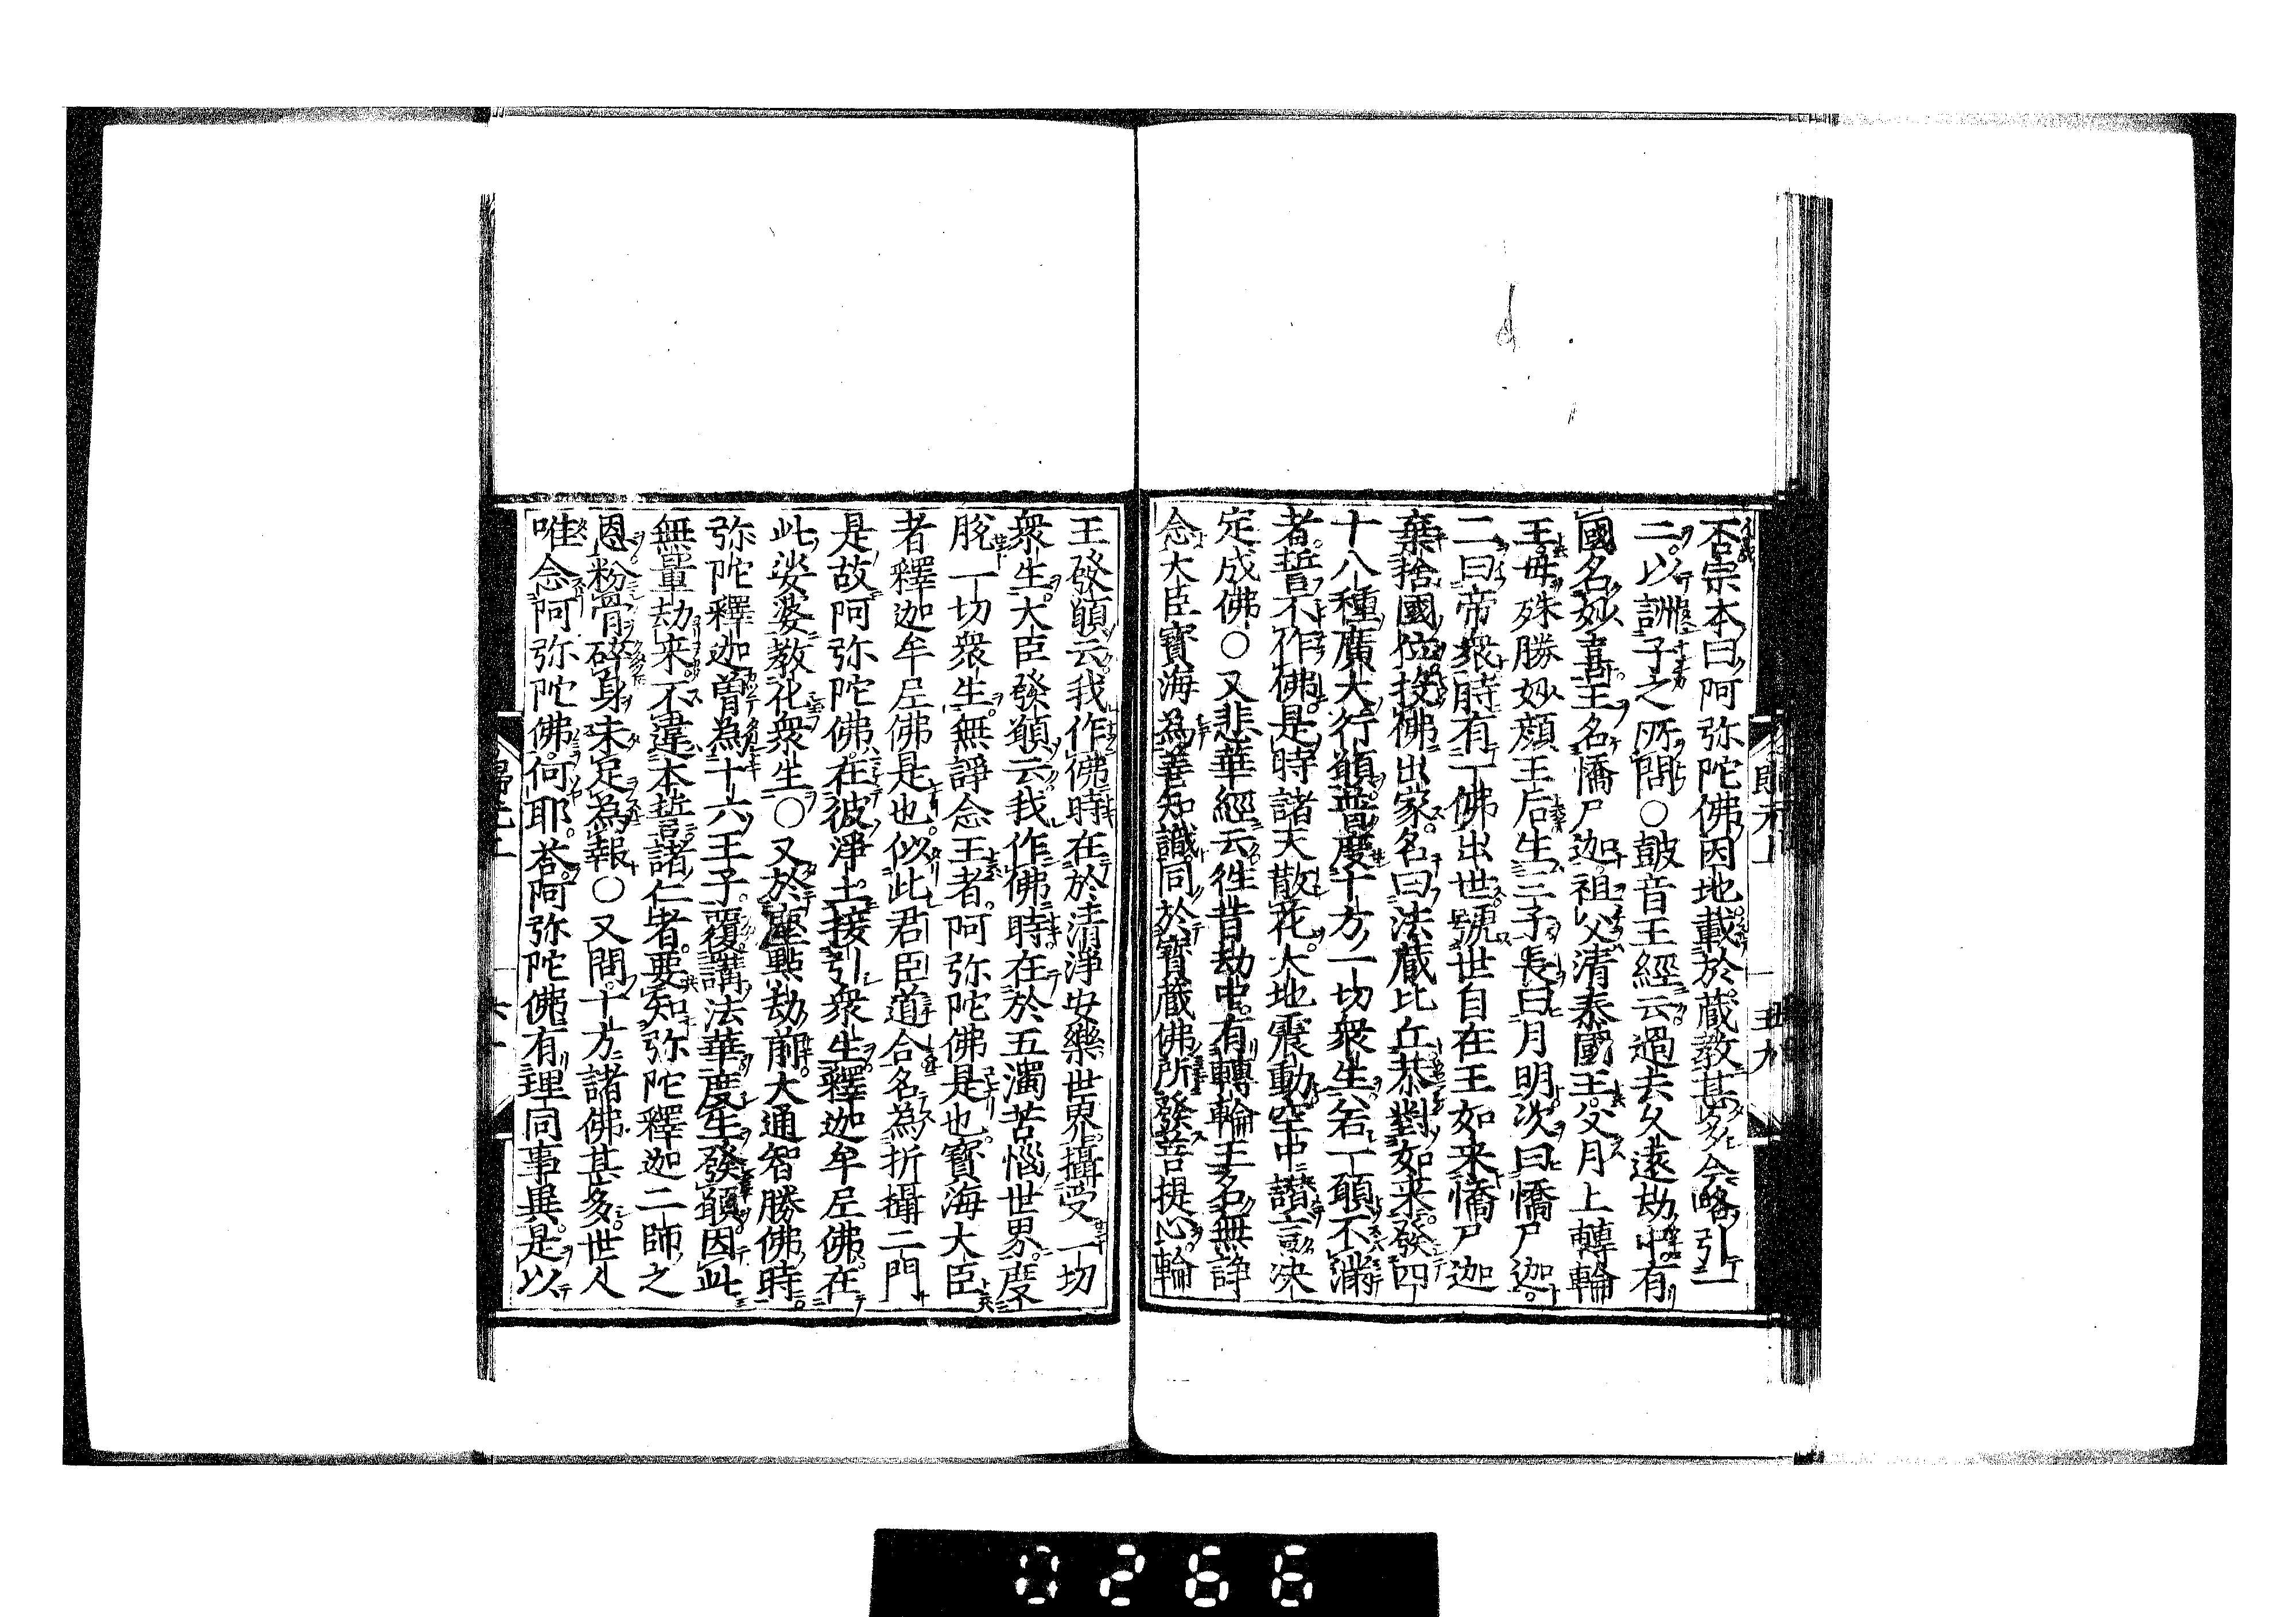 否宗本曰阿弥陀佛因地載於蔵教甚多今略引一
二以詶子之所問○皷音王經云過去久遠劫中有
國名妙喜王名憍尸迦祖父清泰國王父月上轉輪
王母殊勝妙顔王后生三子長曰月明次曰憍尸迦
二曰帝衆時有一佛出世號世自在王如来憍尸迦
棄捨國位投佛出家名曰法蔵比丘恭對如来發四
十八種廣大行願普度十方一切衆生若一願不滿
者誓不作佛是時諸天散花大地震動空中讃言决
定成佛○又悲華經云徃昔劫中有轉輪王名無諍
念大臣寳海為善知識同於寳蔵佛所發菩提心輪
王發願云我作佛時在於清淨安樂世界攝受一切
衆生大臣發願云我作佛時在於五濁苦惱世界度
脫一切衆生無諍念王者阿弥陀佛是也寳海大臣
者釋迦牟尼佛是也似此君臣道合名為折攝二門
是故阿弥陀佛在彼淨土接引衆生釋迦牟尼佛在
此娑婆教化衆生○又於塵點劫前大通智勝佛時
弥陀釋迦曽為十六王子覆講法華度生發願因此
無量劫来不違本誓諸仁者要知弥陀釋迦二師之
恩粉骨碎身未定為報○又問十方諸佛甚多世人
唯念阿弥陀佛何耶荅阿弥陀佛有理同事異是以
0266